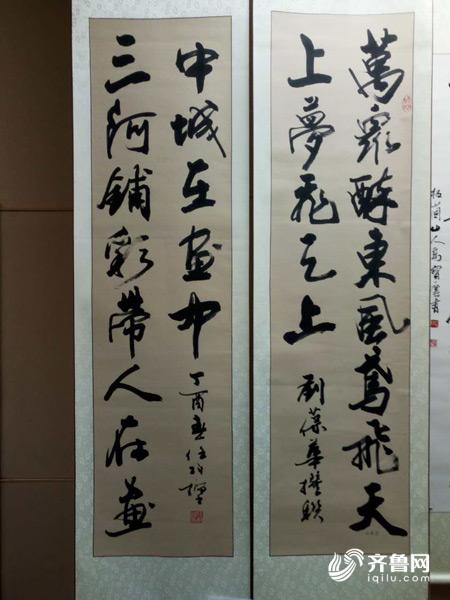 萬衆醉東風鳶飛天
上夢飛天上
劉葆華撰联
三河鋪彩帶人在畫
中城在畫中
丁酉春
山人
書
齐鲁网
iqilu.com